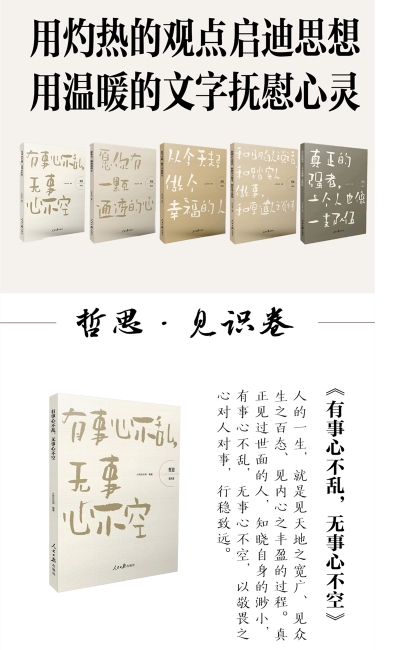 用灼热的观点启迪思想
用温暖的文字抚慰心灵
有事心不乱,
无事
心不空
愿你有
一颗
通透的心
从今天起
做个
幸福的人
真正的
强者,
一个人也像
一支队伍
哲思·见识卷
有事心不乱，无事心不空
有事心不乱,
无事
心不空
人民日报出版社
《有事心不乱，无事心不空》
人的一生，就是见天地之宽广、见众
生之百态、见内心之丰盈的过程。真
正见过世面的人，知晓自身的渺小，
有事心不乱，无事心不空，以敬畏之
心对人对事，行稳致远。